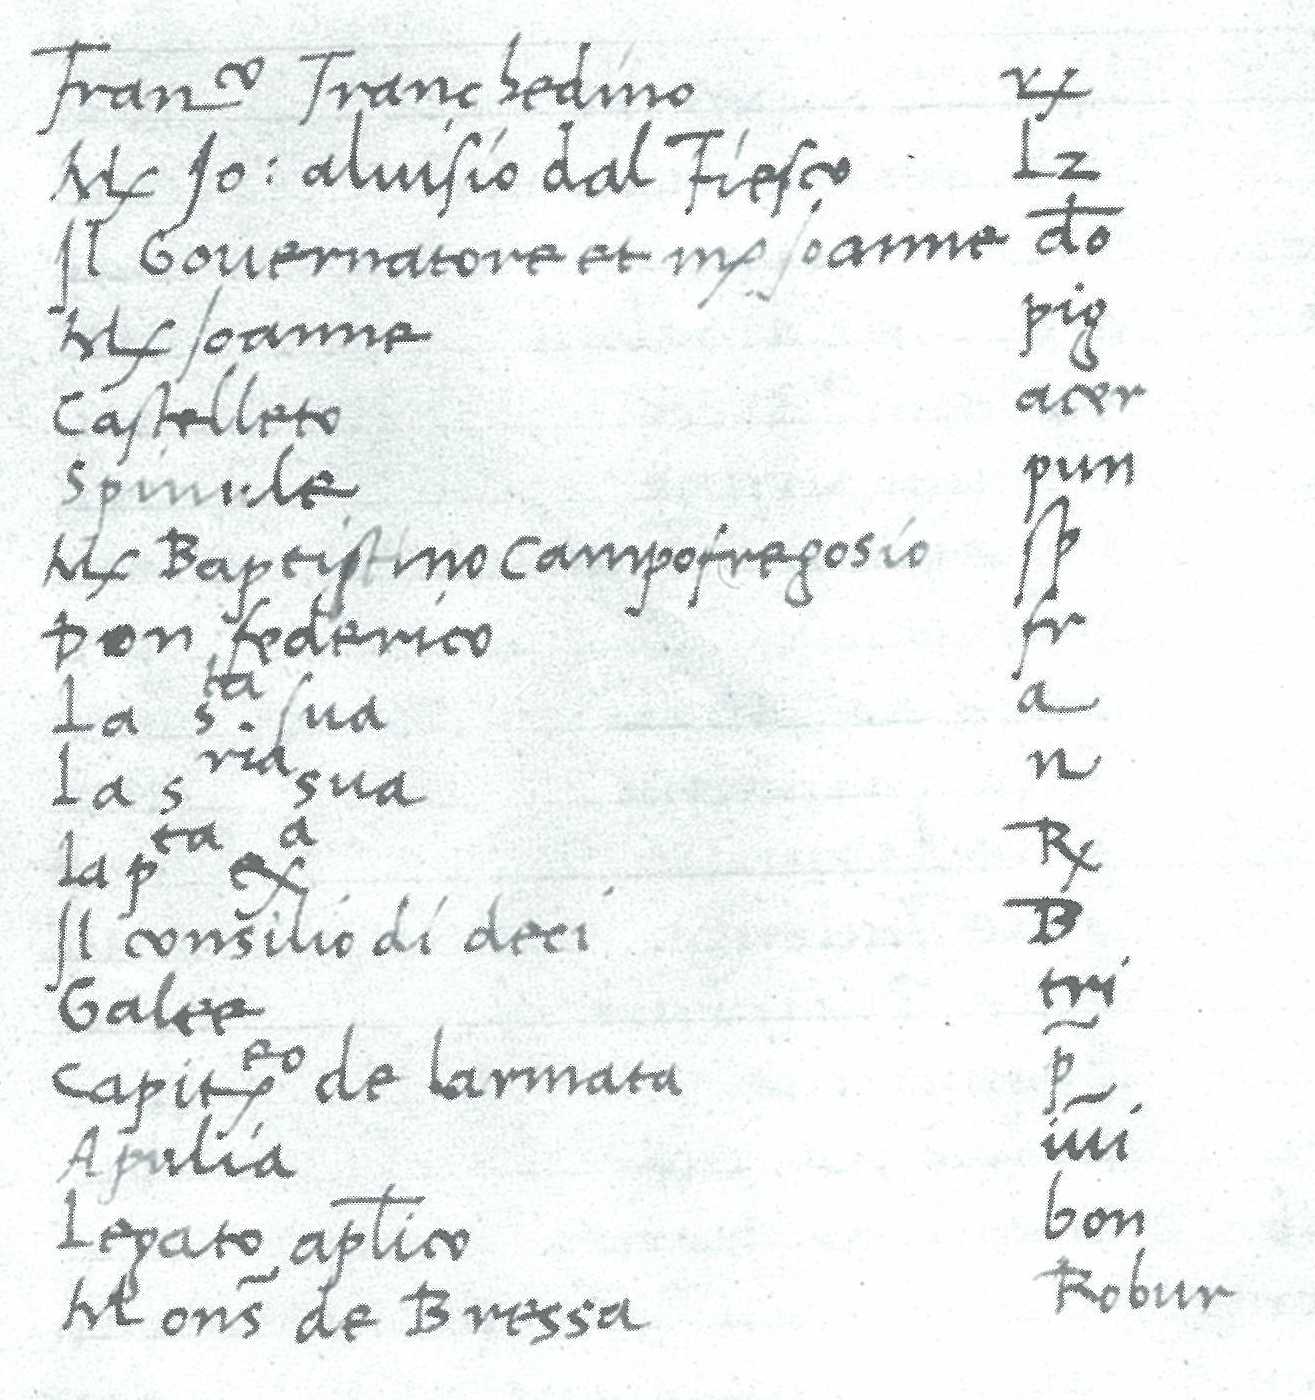 Franco Franchedino rx
Mx Jo: aluisio dal Fiesco Lz
Il Governatore et mx Joanne do
Mx Joanne pig
Castelleto acer
Spinule pun
Mx Baptistino Campofregosio sp
Don federico fr
La sta. sua a
La sria sua n
la pta exa Rx
Il consilio di deci B
Galee tri
Capiteo de larmata p
Apulia iui
Legato aptico bon
Mons de Bressa Robur